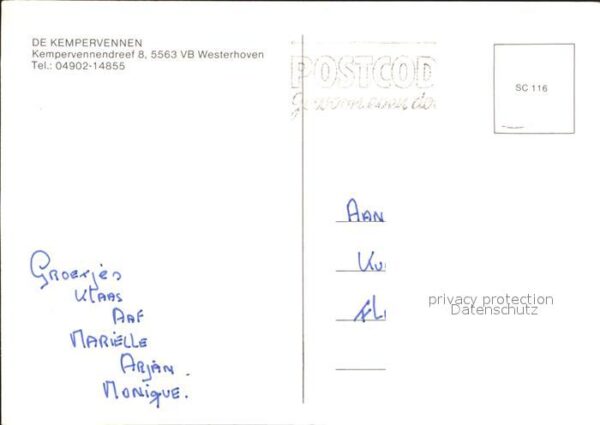 DE KEMPERVENNEN
Kempervennendreef 8, 5563 VB Westerhoven
Tel.: 04902-14855
POSTCOD
SC 116
Groetjes
Klaas
Aaf
Mariëlle
Arjan.
Monique.
Aan
Ku
Fl
privacy protection
Datenschutz